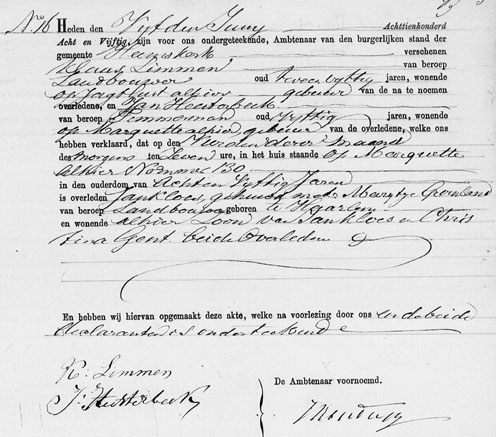 No 16 Heden den Vyfden Juny Achttienhonderd
Acht en Vijftig, zijn voor ons ondergeteekende, Ambtenaar van den burgerlijken stand der
gemeente Heemskerk verschenen
Klaas Limmen van beroep
Landbouwer oud twee en vyftig jaren, wonende
op alhier gebuur van de na te noemen
overledene, en Jan Heesterbeek
van beroep Timmerman oud Vyftig jaren, wonende
op Marquette alhier gebuur van de overledene, welke ons
hebben verklaard, dat op den Vierden dezer maand
des morgens ten Zeven ure, in het huis staande op Marquette
alhier Nommer 130
in den ouderdom van Acht en Vyftig Jaren
is overleden Jan Kloes gehuwd met Marytje
van beroep Landbouwer geboren te Haarlem
en wonende alhier Zoon van Jan Kloes en Chris
tina Gent beide Overleden
En hebben wij hiervan opgemaakt deze akte, welke na voorlezing door ons en de beide
declaranten is onderteekend
K. Limmen
J. Heesterbeek
De Ambtenaar voornoemd.